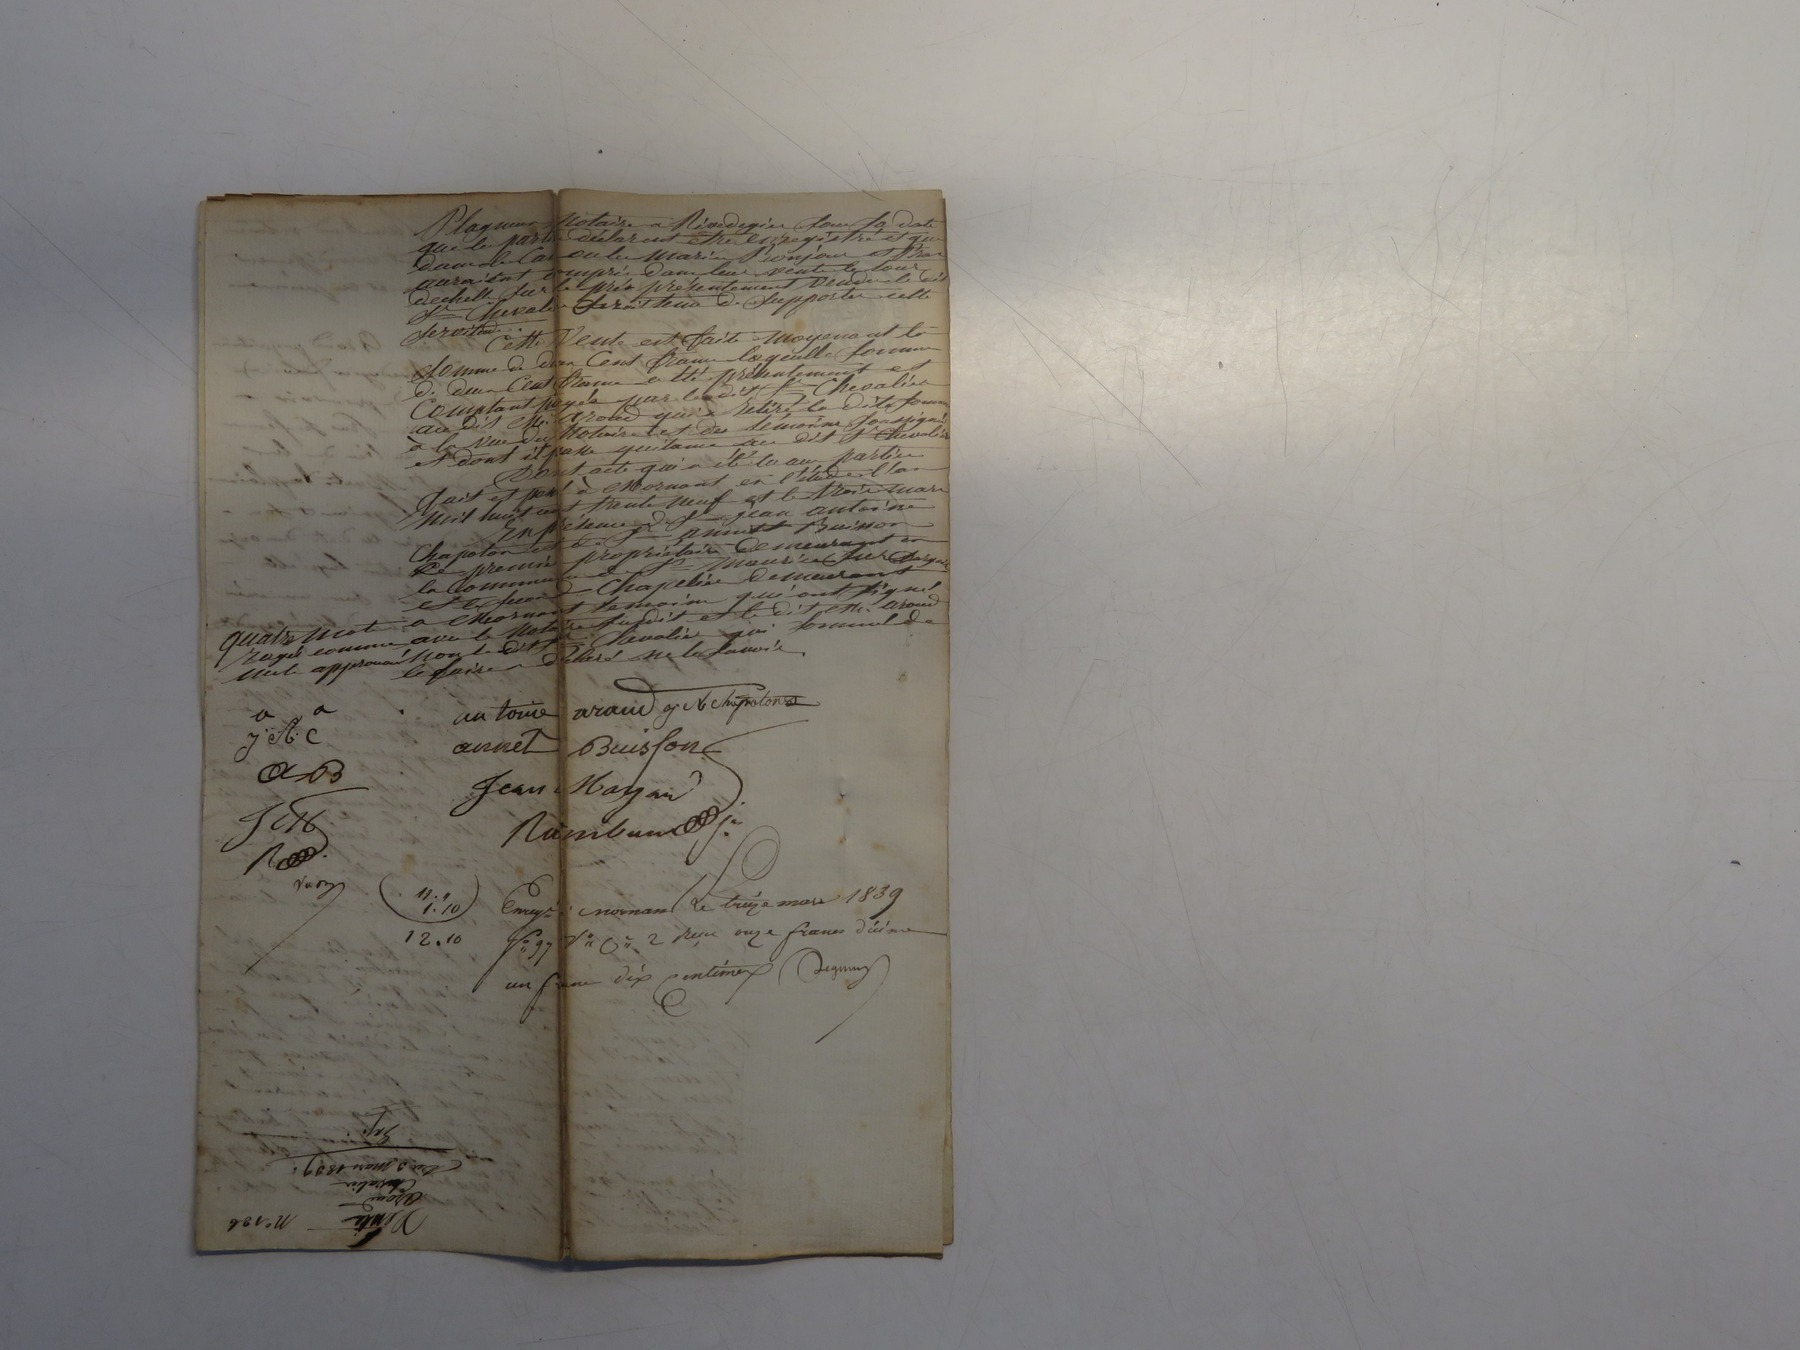 Plagneux Notaire à Rivedegier sous sa date
que les parties déclarent être enregistré et que
dans le Cas ou les Mariés
auraient compris dans leur vente le tour
dechelle sur le prix présentement vendu le dit
Sr Chevalier seroit tenu de supporter cette
servitude.
Cette Vente est faite moyenant la
somme de deux Cent francs laquelle somme
de deux Cent francs a été présentement et
Comptant payée par le dit Sr Chevalier
au dit Mr. aroud qui a retiré la dite somme
à la vue du Notaire et des témoins soussignés
et dont il passe quitance au dit Sr Chevalier
Dont acte qui a été lu aux parties
fait et passé à Mornant en l'étude l'an
mil huit cent trente neuf et le trois mars
En présence de Sr jean antoine
Chapoton et de Sr annet Buisson
le premier propriétaire demeurant en
la Commune de St maurice sur dargoire
et le second Chapelier demeurant
à Mornant temoins qui ont signé
avec le Notaire susdit et le dit Mr. aroud
non le dit Sr Chevalier qui sommé de
le faire a déclaré ne le savoir.
quatre mots
rayés comme
nuls approuvés
a a
j A C
a B
J M
R
antoine aroud j A Chapoton
annet Buisson
Jean Mayan
Rambaud jne
11. "
1.10
12.10
Enregé à mornant Le treize mars 1839
fo 97 Vo Ce 2 reçu onze francs décime
un franc dix centimes
Vente
No 136
Aroud
Chevalier
Du 3 mars 1839